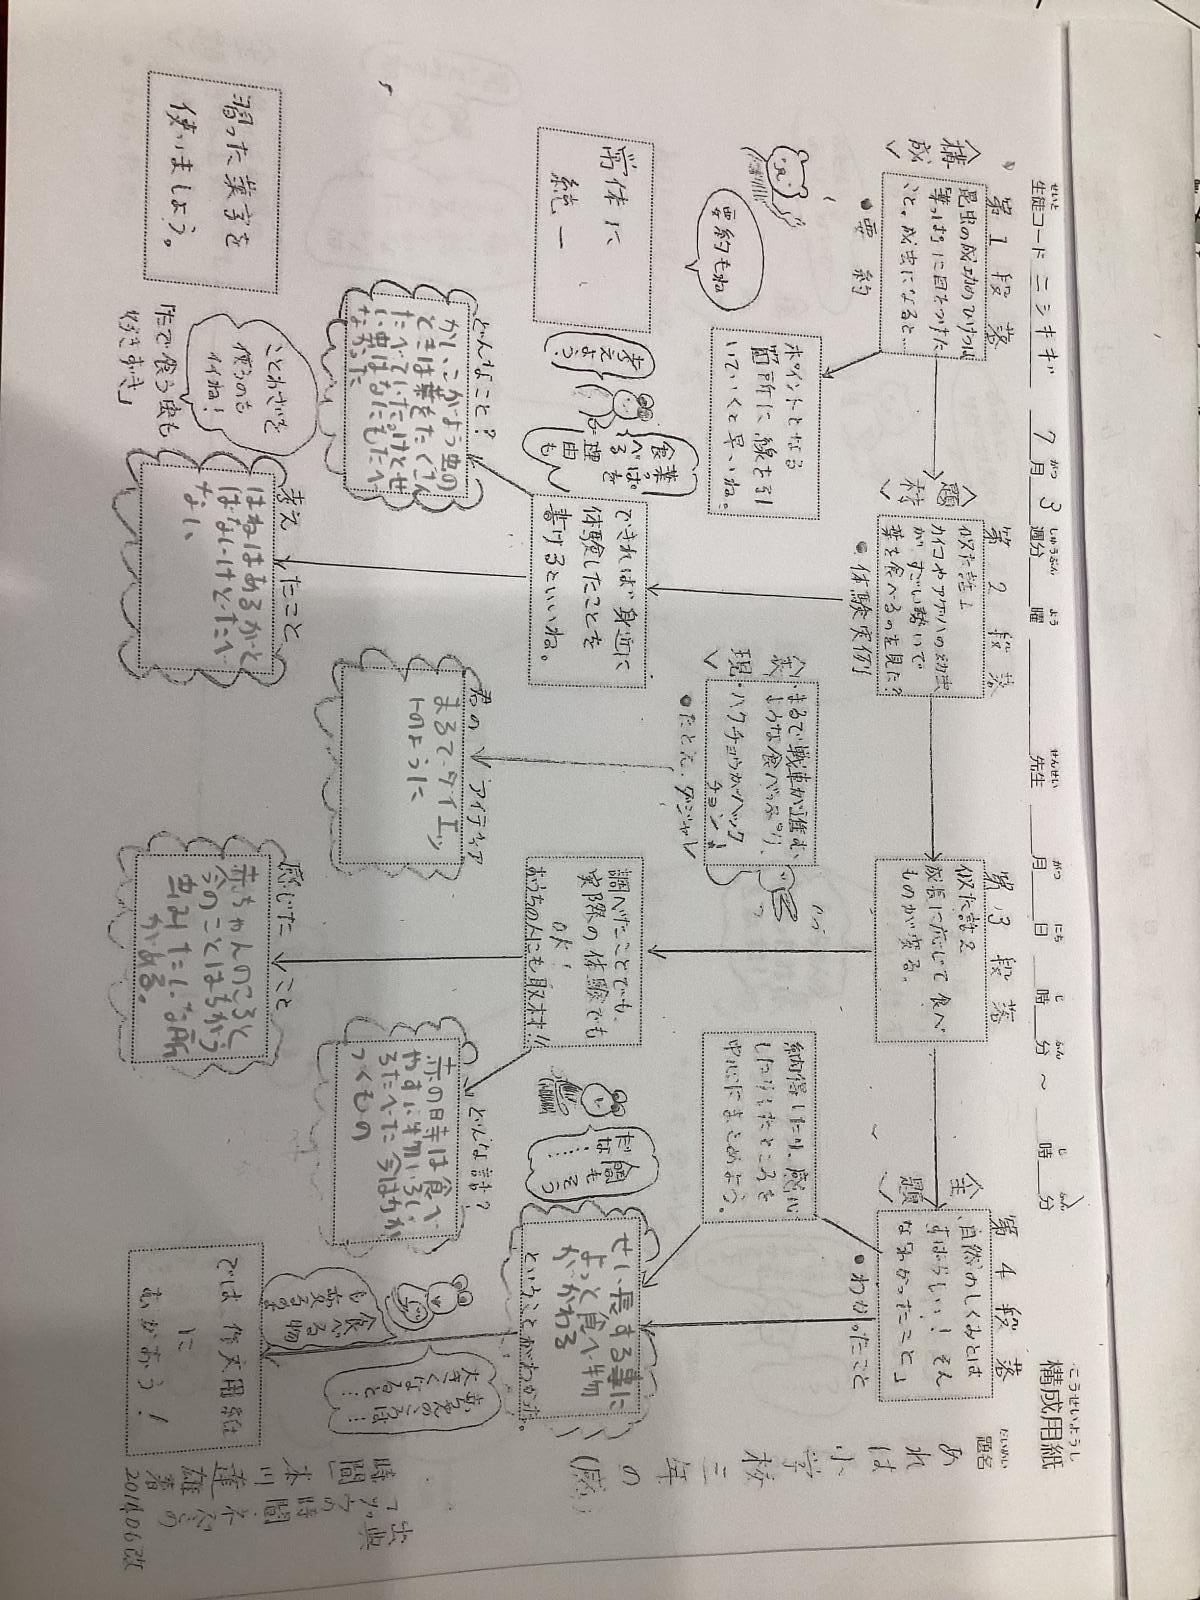 こうせいようし
構成用紙
せいと
生徒コード ニシキギ 7月 3週分 曜 先生 月 日 時 分 ～ 時 分
だいめい
題名
あれは小学校三年の(感)
第1段落
〈構成〉
昆虫の成功のひけつは
葉っぱに目をつけた
こと。成虫になると…
●要約
要約もね
ポイントとなる
箇所に線を引
いていくと早いね。
常体に
統一
習った漢字を
使いましょう。
第2段落
〈題材〉
似た話1
カイコやアゲハの幼虫
がすごい勢いで
葉を食べるのを見た?
●体験実例
できれば身近に
体験したことを
書けるといいね。
考えよう?
葉っぱを
食べる
理由も
どんなこと?
かいこがよう虫の
ときは葉をたくさん
たべていたけどせ
い虫はなにもたべ
なかった
ことわざを
使うのも
イイね!
「たで食う虫も
好きずき」
考えたこと
はねはあるがと
ばないけどたべ
ない
〈表現〉
・まるで戦車が進む
ような食べっぷり、
・ハクチョウがハック
チョン!
●たとえ、ダジャレ
君のアイディア
まるでダイエッ
トのように
第3段落
似た話2
成長に応じて食べ
ものが変る。
調べたことでも、
実際の体験でも
OK!
おうちの人にも取材!!
どんな話?
赤の時は食べ
やすい物
たべた今は
つくもの
感じたこと
赤ちゃんのころと
今のことはちがう
虫みたいな所
がある。
第4段落
〈主題〉
自然のしくみとは
すばらしい!そん
な「わかったこと」
●わかったこと
納得したり、感心
したりしたところを
中心にまとめよう。
人間も
そう
だな……
せい長する事に
よって食べ物
がかわる
ということがわかった。
葉虫のころは
大きくなると…
食べる物
も変る
では作文用紙
に
むかおう!
出典
木川達雄著
2014.06改